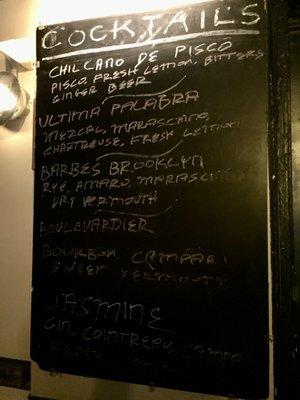 COCKTAILS
CHILCANO DE PISCO
PISCO, FRESH LEMON, BITTERS
GINGER BEER
ULTIMA PALABRA
MEZCAL, MARASCHINO,
CHARTREUSE, FRESH LEMON
BARBES BROOKLYN
RYE, AMARO, MARASCHINO
DRY VERMOUTH
BOULEVARDIER
BOURBON CAMPARI
SWEET VERMOUTH
JASMINE
GIN, COINTREAU, CAMPA
FRESH